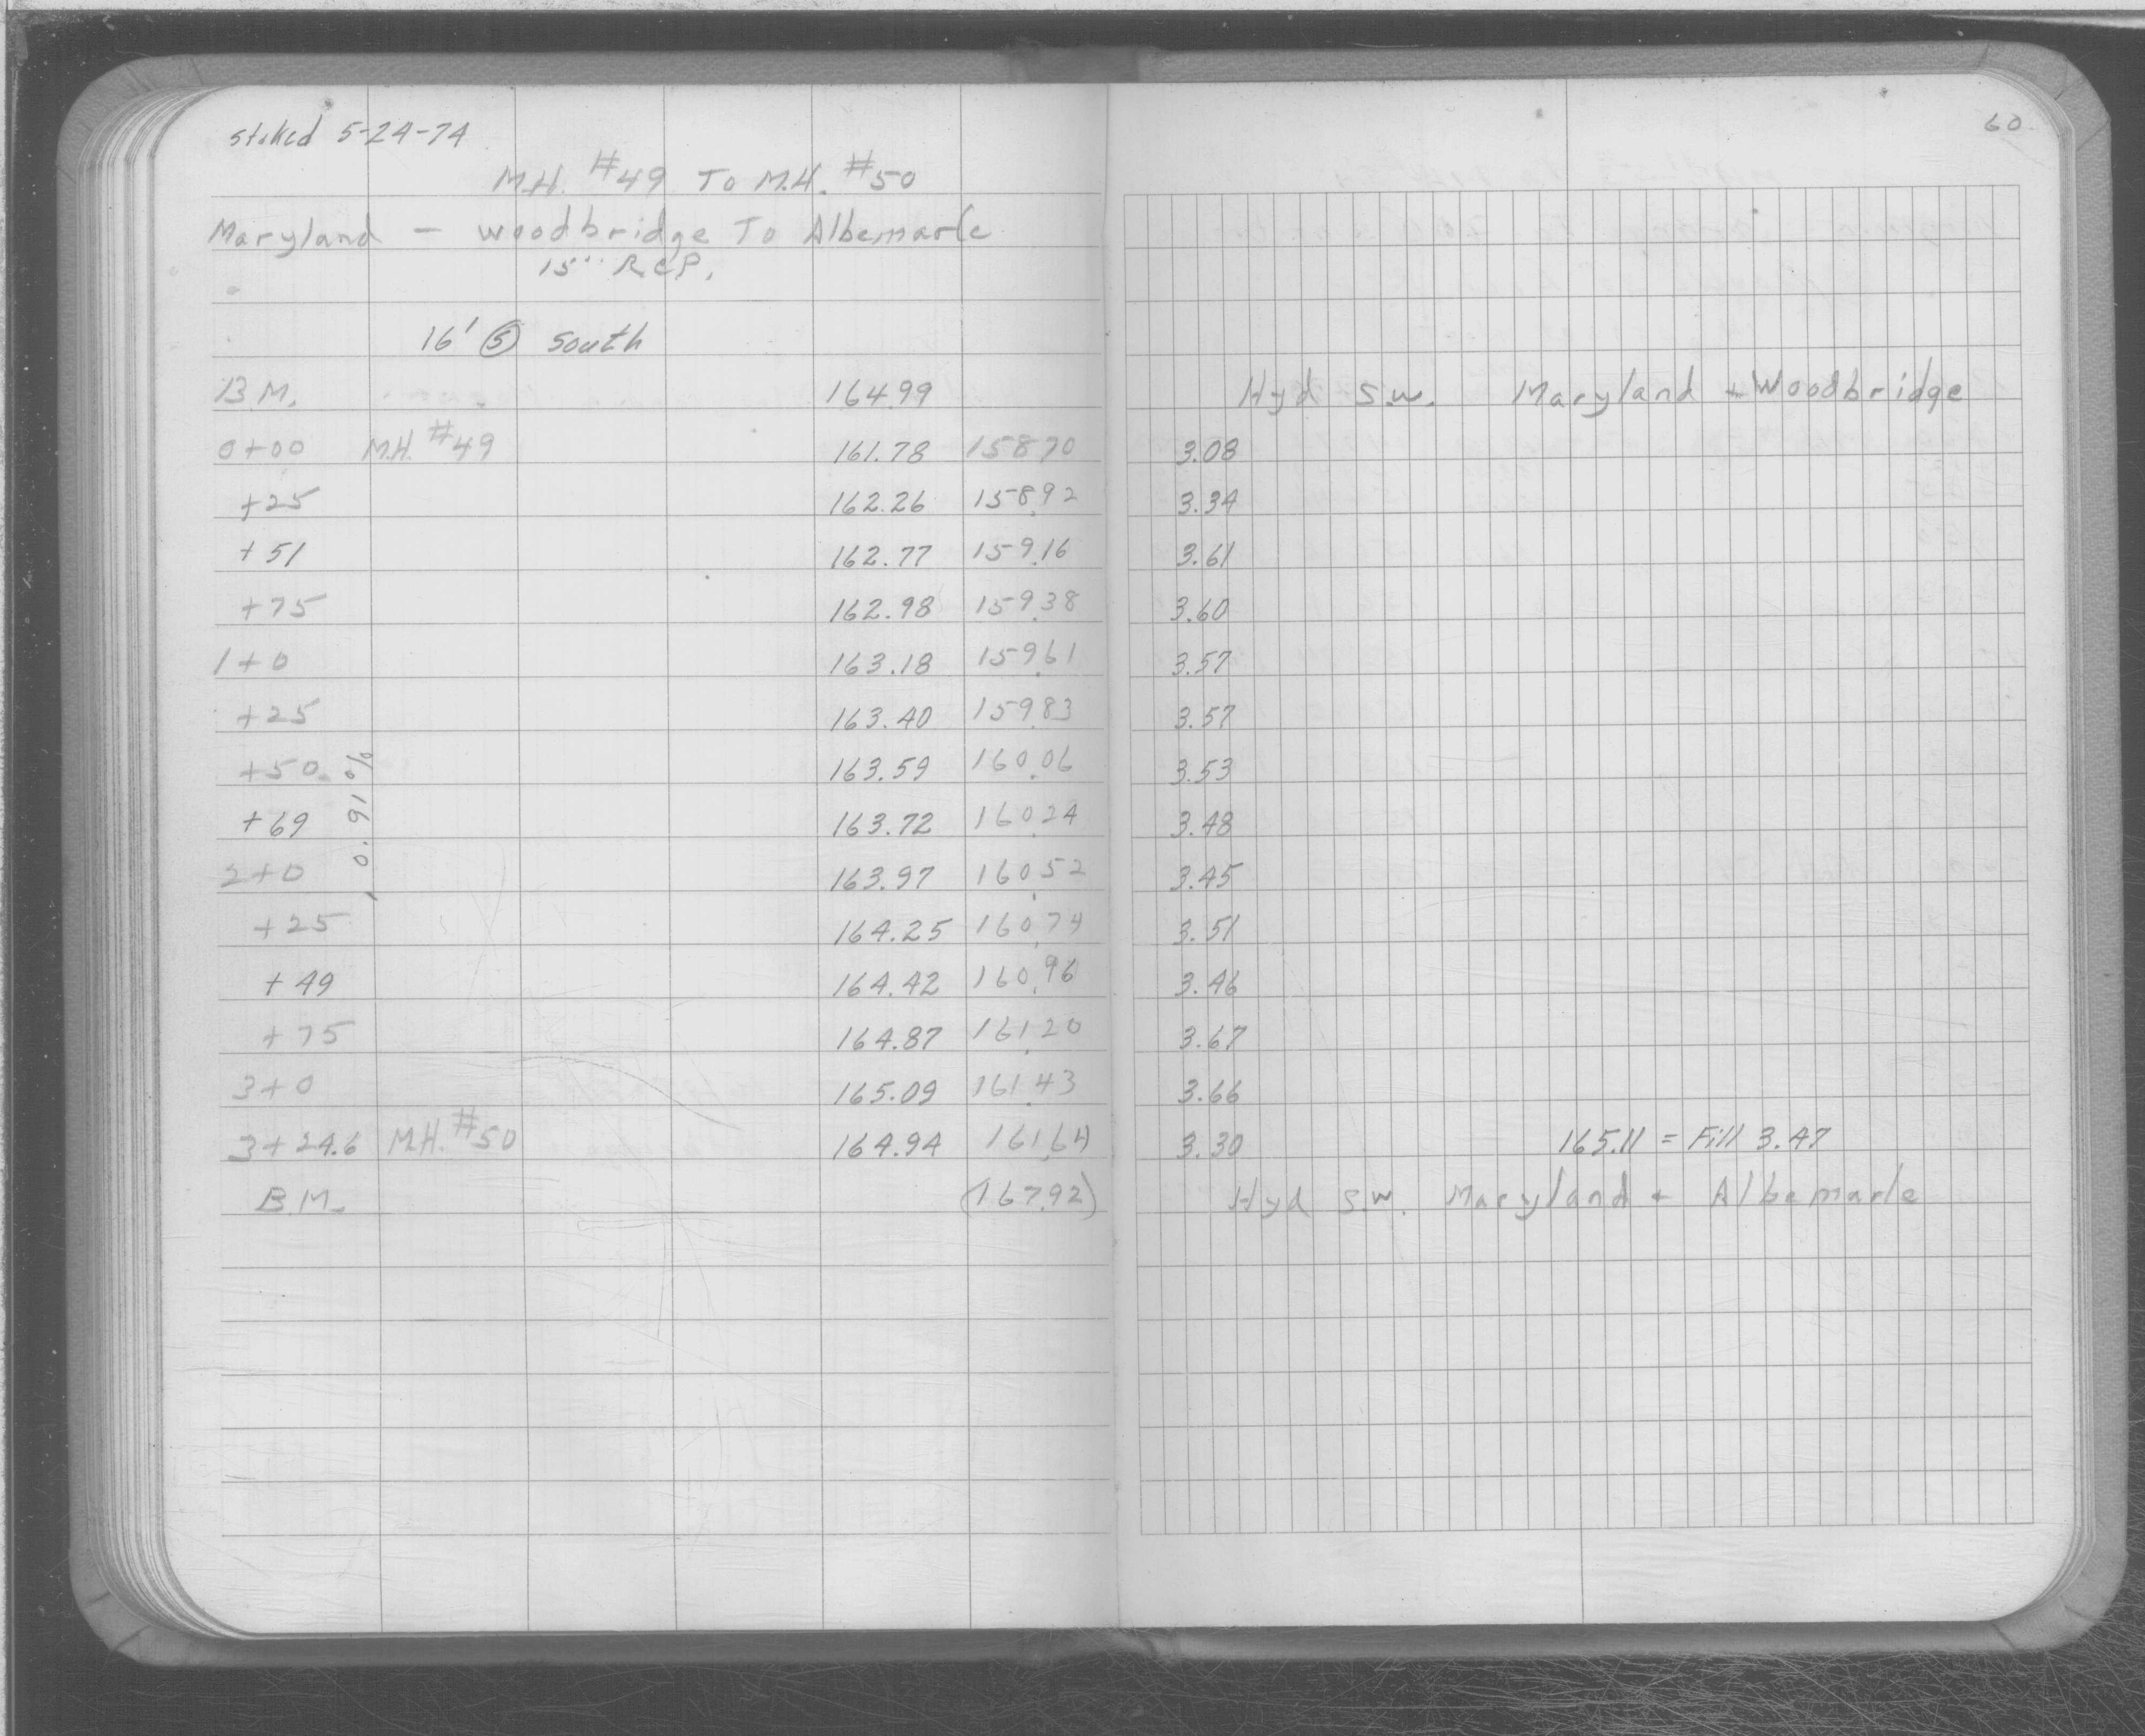 staked 5-24-74
60
M.H. #49 To M.H. #50
Maryland - Woodbridge To Albemarle
15" R.C.P.
16' Ⓢ South
B.M. 164.99 Hyd S.W. Maryland + Woodbridge
0+00 M.H. #49 161.78 158.70 3.08
+25 162.26 158.92 3.34
+51 162.77 159.16 3.61
+75 162.98 159.38 3.60
1+0 163.18 159.61 3.57
+25 163.40 159.83 3.57
+50 163.59 160.06 3.53
0.91%
+69 163.72 160.24 3.48
2+0 163.97 160.52 3.45
+25 164.25 160.74 3.51
+49 164.42 160.96 3.46
+75 164.87 161.20 3.67
3+0 165.09 161.43 3.66
3+24.6 M.H. #50 164.94 161.64 3.30 165.11 = Fill 3.47
B.M. (167.92) Hyd S.W. Maryland + Albemarle